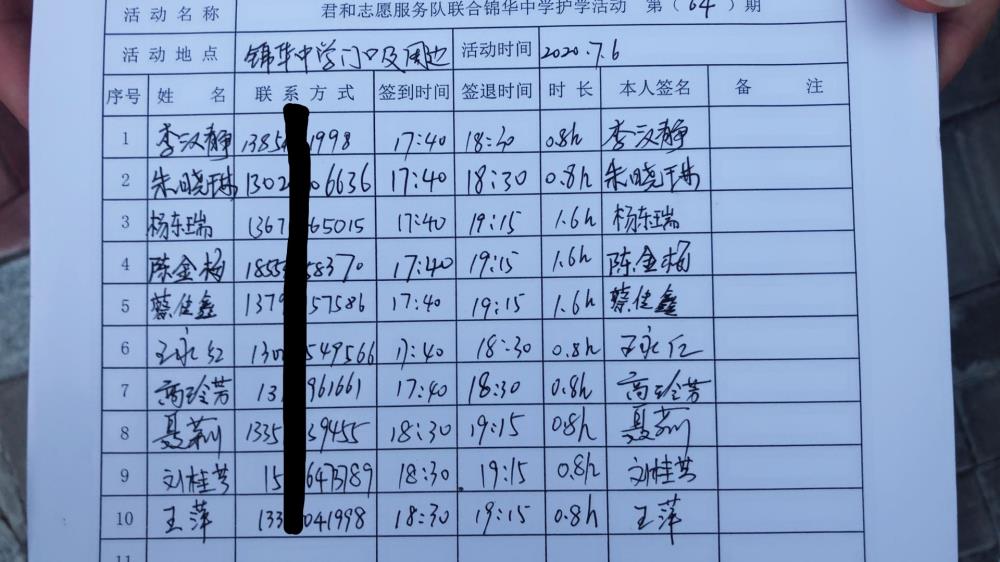 活动名称 君和志愿服务队联合锦华中学护学活动 第(64)期
活动地点 锦华中学门口及周边 活动时间 2020.7.6
序号 姓名 联系方式 签到时间 签退时间 时长 本人签名 备注
1 李汉静 1385 1998 17:40 18:30 0.8h 李汉静
2 朱晓琳 1302 06636 17:40 18:30 0.8h 朱晓琳
3 杨东瑞 1367 65015 17:40 19:15 1.6h 杨东瑞
4 陈金梅 1855 58370 17:40 19:15 1.6h 陈金梅
5 蔡佳鑫 1379 57586 17:40 19:15 1.6h 蔡佳鑫
6 王永红 130 549566 17:40 18:30 0.8h 王永红
7 高玲芳 13 961661 17:40 18:30 0.8h 高玲芳
8 聂莉 1335 39455 18:30 19:15 0.8h 聂莉
9 刘桂芳 15 18:30 19:15 0.8h 刘桂芳
10 王萍 133 041998 18:30 19:15 0.8h 王萍
11